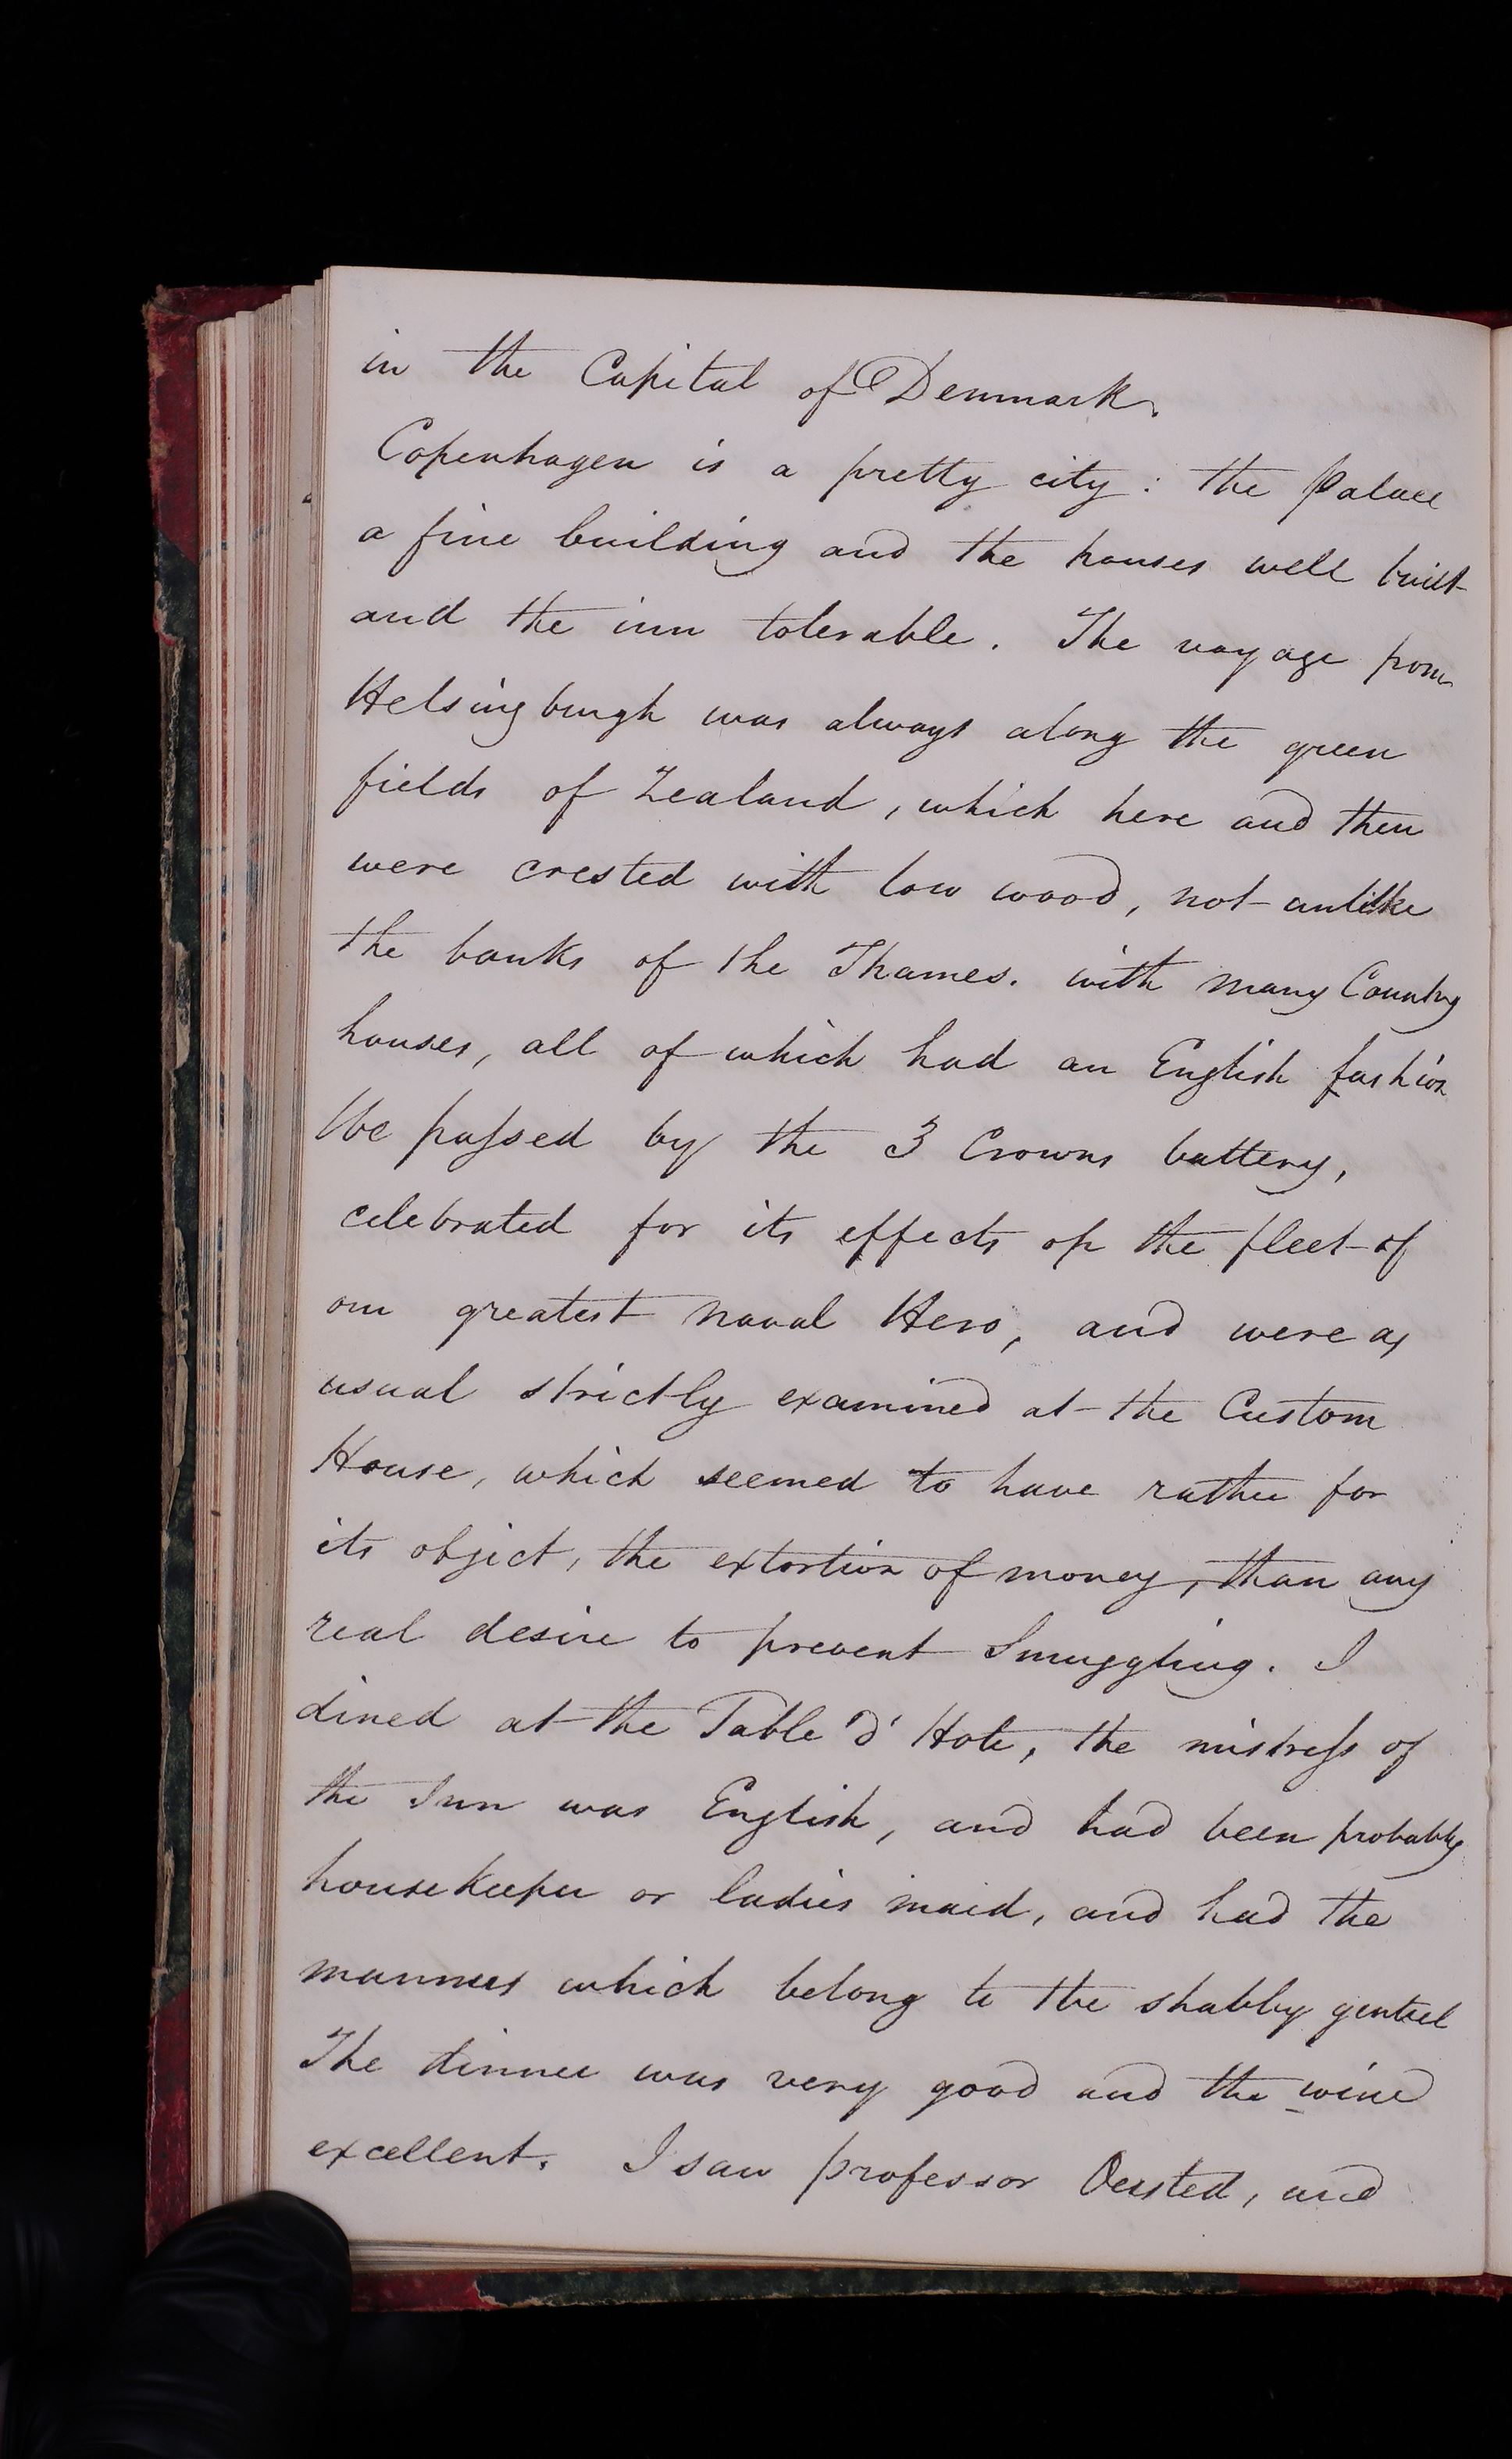 in the Capital of Denmark.
Copenhagen is a pretty city: the Palace
a fine building and the houses well built
and the inn tolerable. The voyage from
Helsingburgh was always along the green
fields of Zealand, which here and then
were crested with low wood, not unlike
the banks of the Thames. with many Country
houses, all of which had an English fashion
We passed by the 3 Crowns battery,
celebrated for its effects on the fleet of
our greatest naval Hero, and were as
usual strictly examined at the Custom
House, which seemed to have rather for
its object, the extortion of money, than any
real desire to prevent Smuggling. I
dined at the Table d' Hote, the mistress of
the Inn was English, and had been probably
housekeeper or ladies maid, and had the
manners which belong to the shabby genteel
The dinner was very good and the wine
excellent. I saw professor Oersted, and